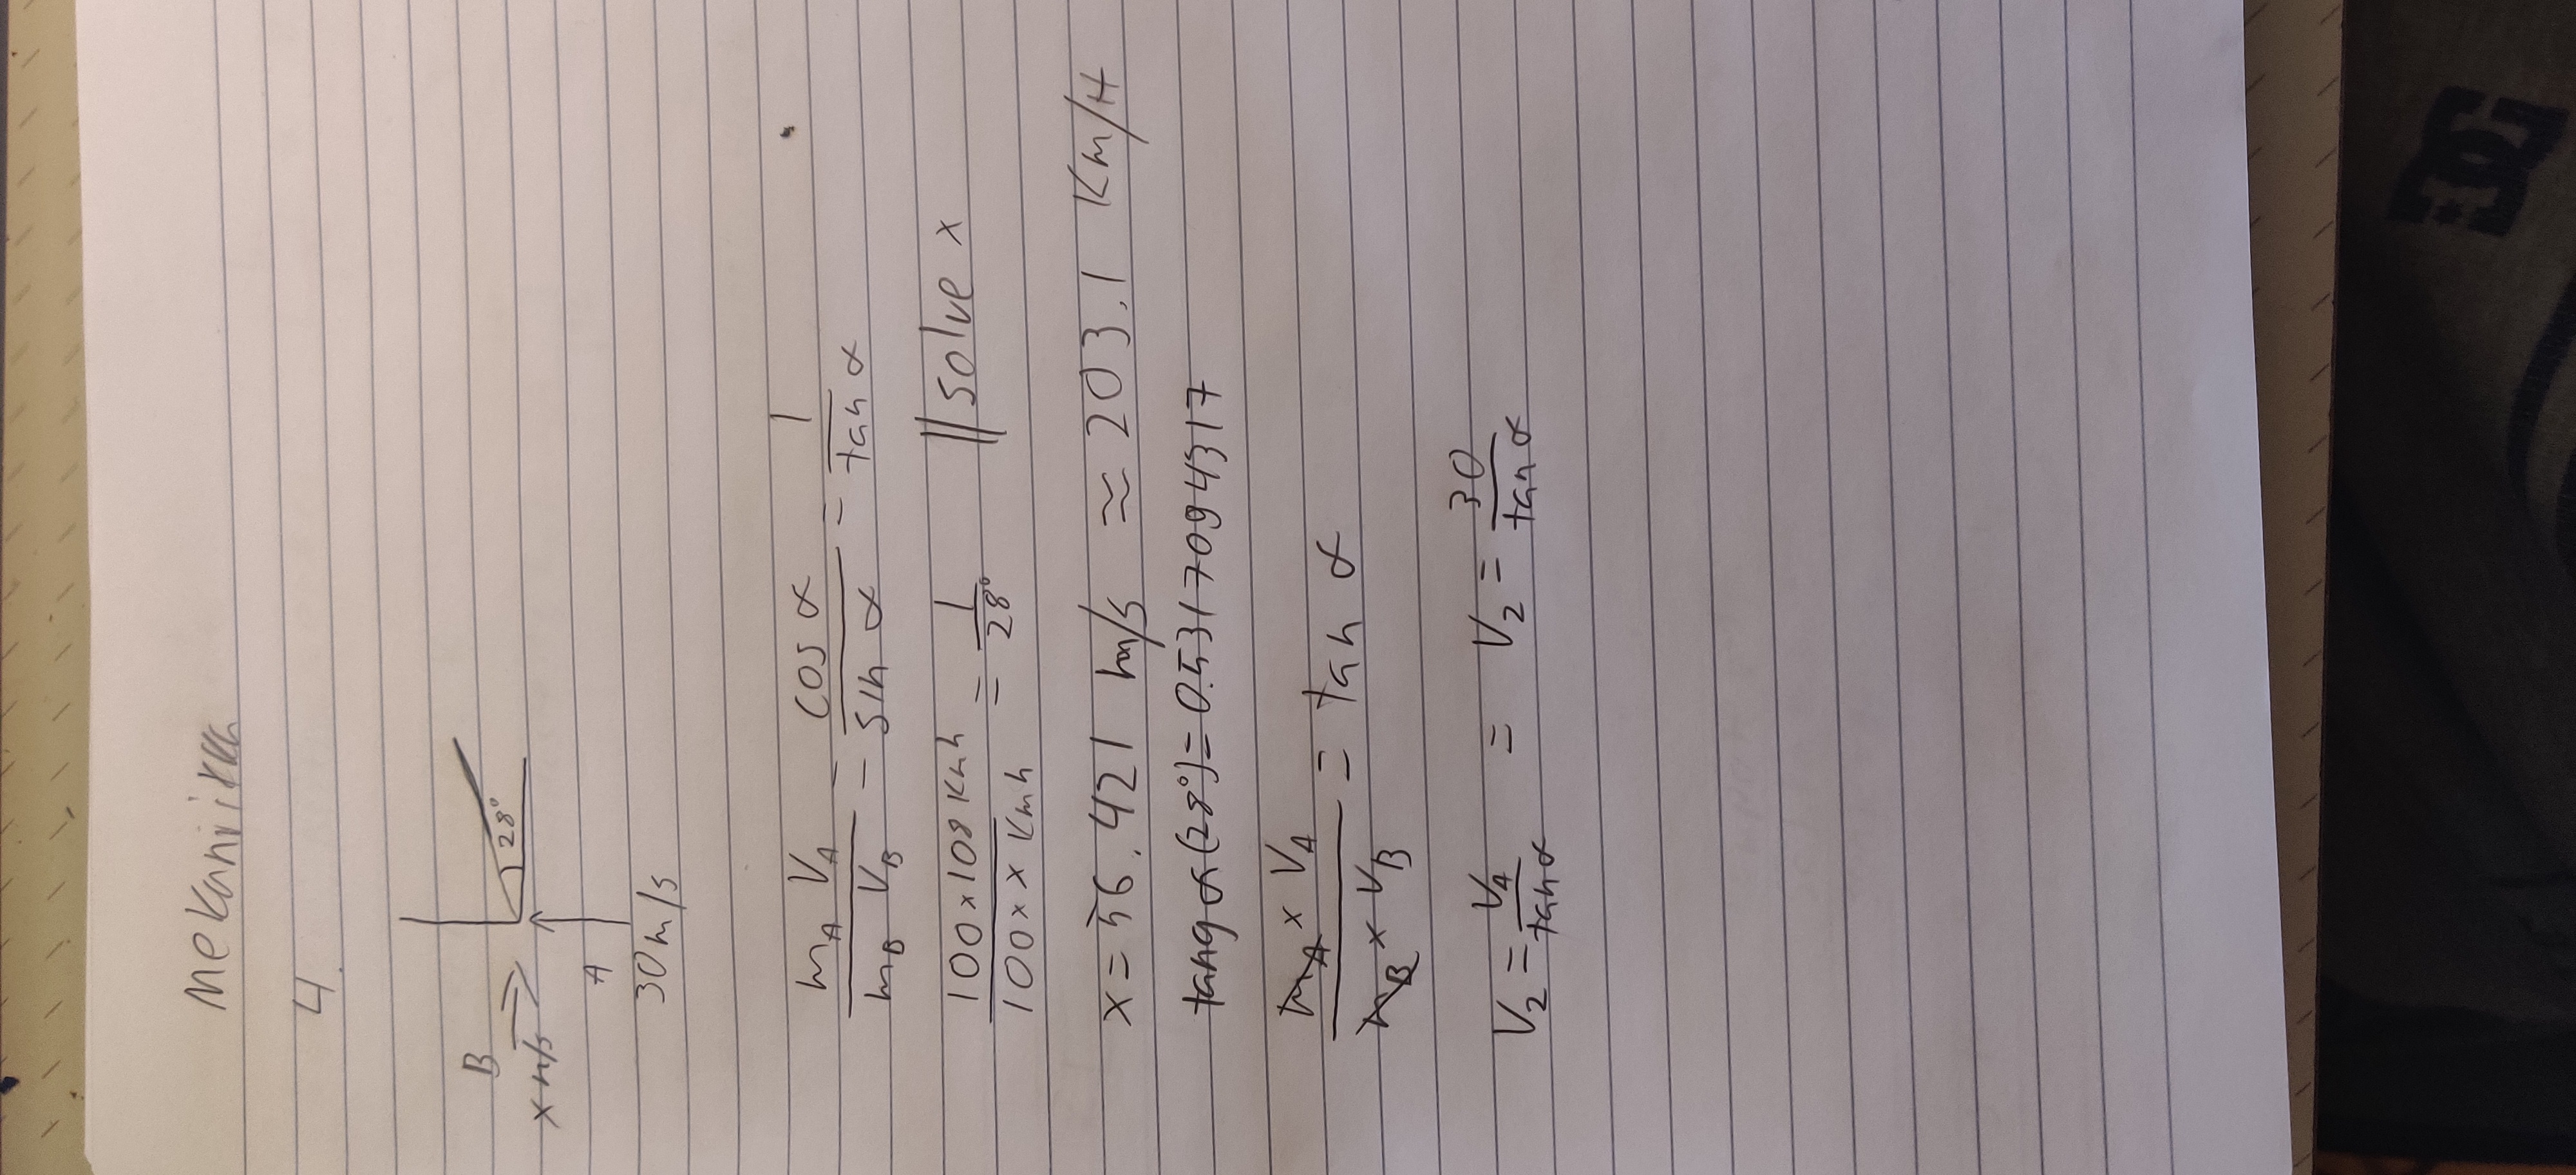 Mekaniikka
4.
B
28°
x m/s
A
30 m/s
mA VA / mB VB = cos α / sin α = 1 / tan α
100 x 108 Kmh / 100 x x Kmh = 1 / 28° || solve x
x = 56.421 m/s ≈ 203.1 Km/H
tang α (28°) = 0.5317094317
mA x VA / mB x VB = tan α
V2 = VA / tan α = V2 = 30 / tan α
DC